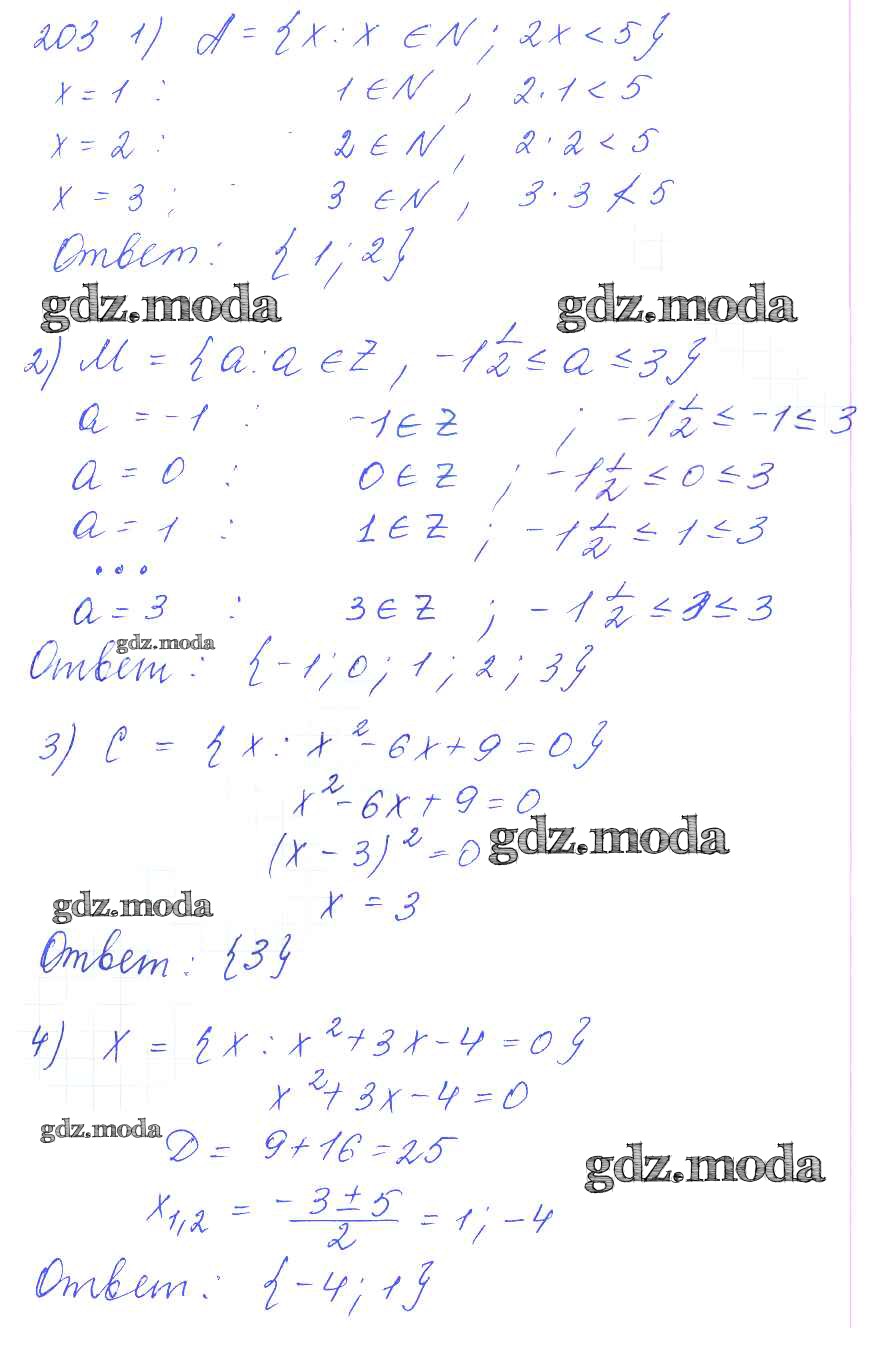 203 1) A = {x : x ∈ N ; 2x < 5}
x = 1 : 1 ∈ N , 2·1 < 5
x = 2 : 2 ∈ N , 2·2 < 5
x = 3 ; 3 ∈ N , 3·3 ≮ 5
Ответ: {1; 2}
gdz.moda gdz.moda
2) M = {a : a ∈ Z , -1 1/2 ≤ a ≤ 3}
a = -1 : -1 ∈ Z ; -1 1/2 ≤ -1 ≤ 3
a = 0 : 0 ∈ Z ; -1 1/2 ≤ 0 ≤ 3
a = 1 : 1 ∈ Z ; -1 1/2 ≤ 1 ≤ 3
...
a = 3 : 3 ∈ Z ; -1 1/2 ≤ 3 ≤ 3
gdz.moda
Ответ: {-1; 0; 1; 2; 3}
3) C = {x : x² - 6x + 9 = 0}
x² - 6x + 9 = 0
(x - 3)² = 0
gdz.moda
x = 3
gdz.moda
Ответ: {3}
4) X = {x : x² + 3x - 4 = 0}
x² + 3x - 4 = 0
gdz.moda
D = 9 + 16 = 25
gdz.moda
x₁,₂ = (-3 ± 5)/2 = 1; -4
Ответ: {-4; 1}